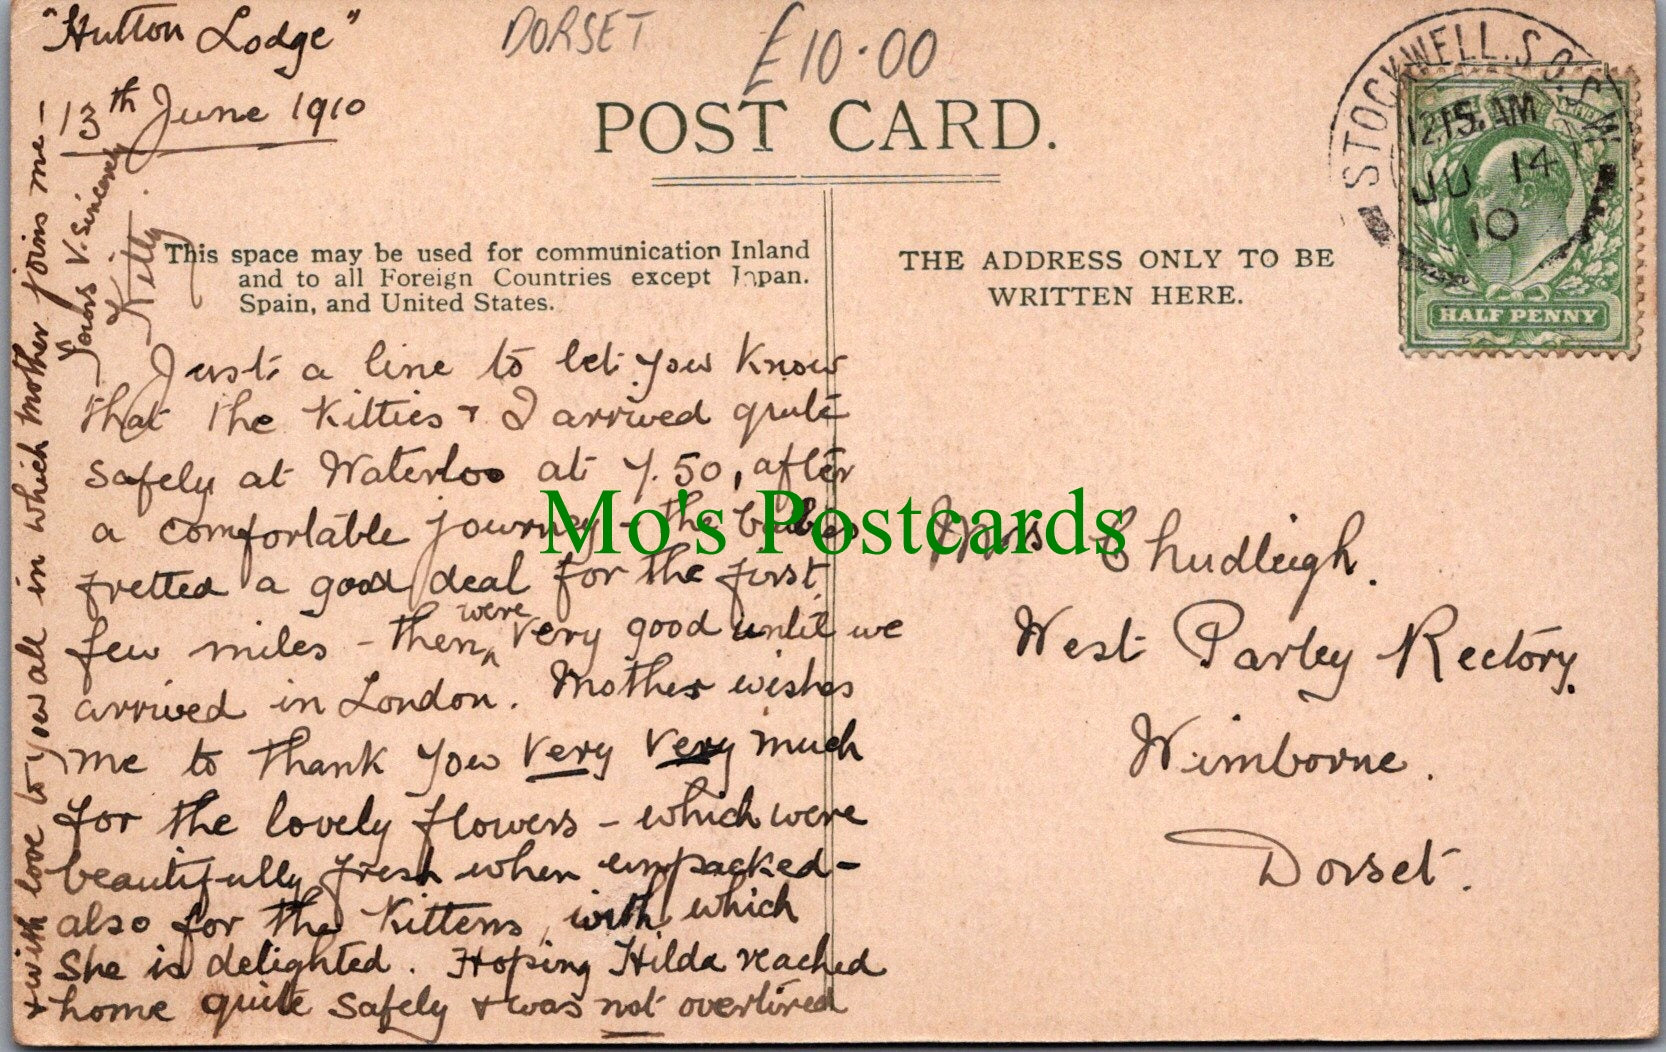 "Hutton Lodge"
DORSET
£10.00
13th June 1910
POST CARD.
STOCKWELL. S.O.
12.15. AM
JU 14
10
HALF PENNY
This space may be used for communication Inland
and to all Foreign Countries except Japan.
Spain, and United States.
THE ADDRESS ONLY TO BE
WRITTEN HERE.
Just a line to let you know
that the Kitties & I arrived quite
safely at Waterloo at 7.50, after
a comfortable journey - the babies
fretted a good deal for the first
few miles - then were very good until we
arrived in London. Mother wishes
me to thank you very very much
for the lovely flowers - which were
beautifully fresh when unpacked -
also for the Kittens, with which
she is delighted. Hoping Hilda reached
home quite safely & was not overtired
& with love to you all in which mother joins me -
Yours V. Sincerely
Kitty
Mrs Chudleigh.
West Parley Rectory.
Wimborne.
Dorset.
Mo's Postcards